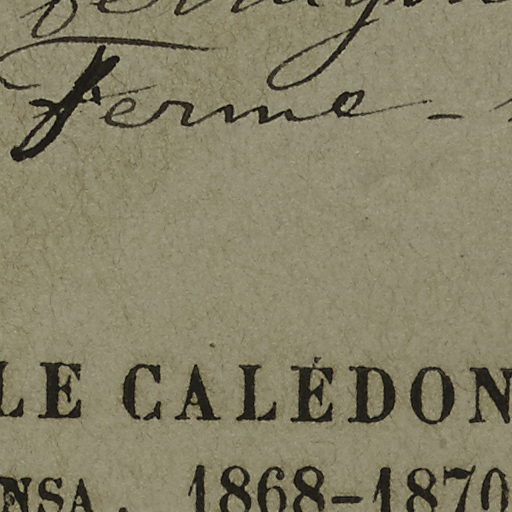 Ferme -
LE CALÉDON
NSA. 1868-1870